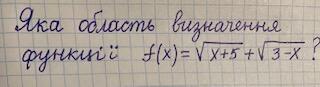 Яка область визначення
функції f(x)=√x+5+√3-x?